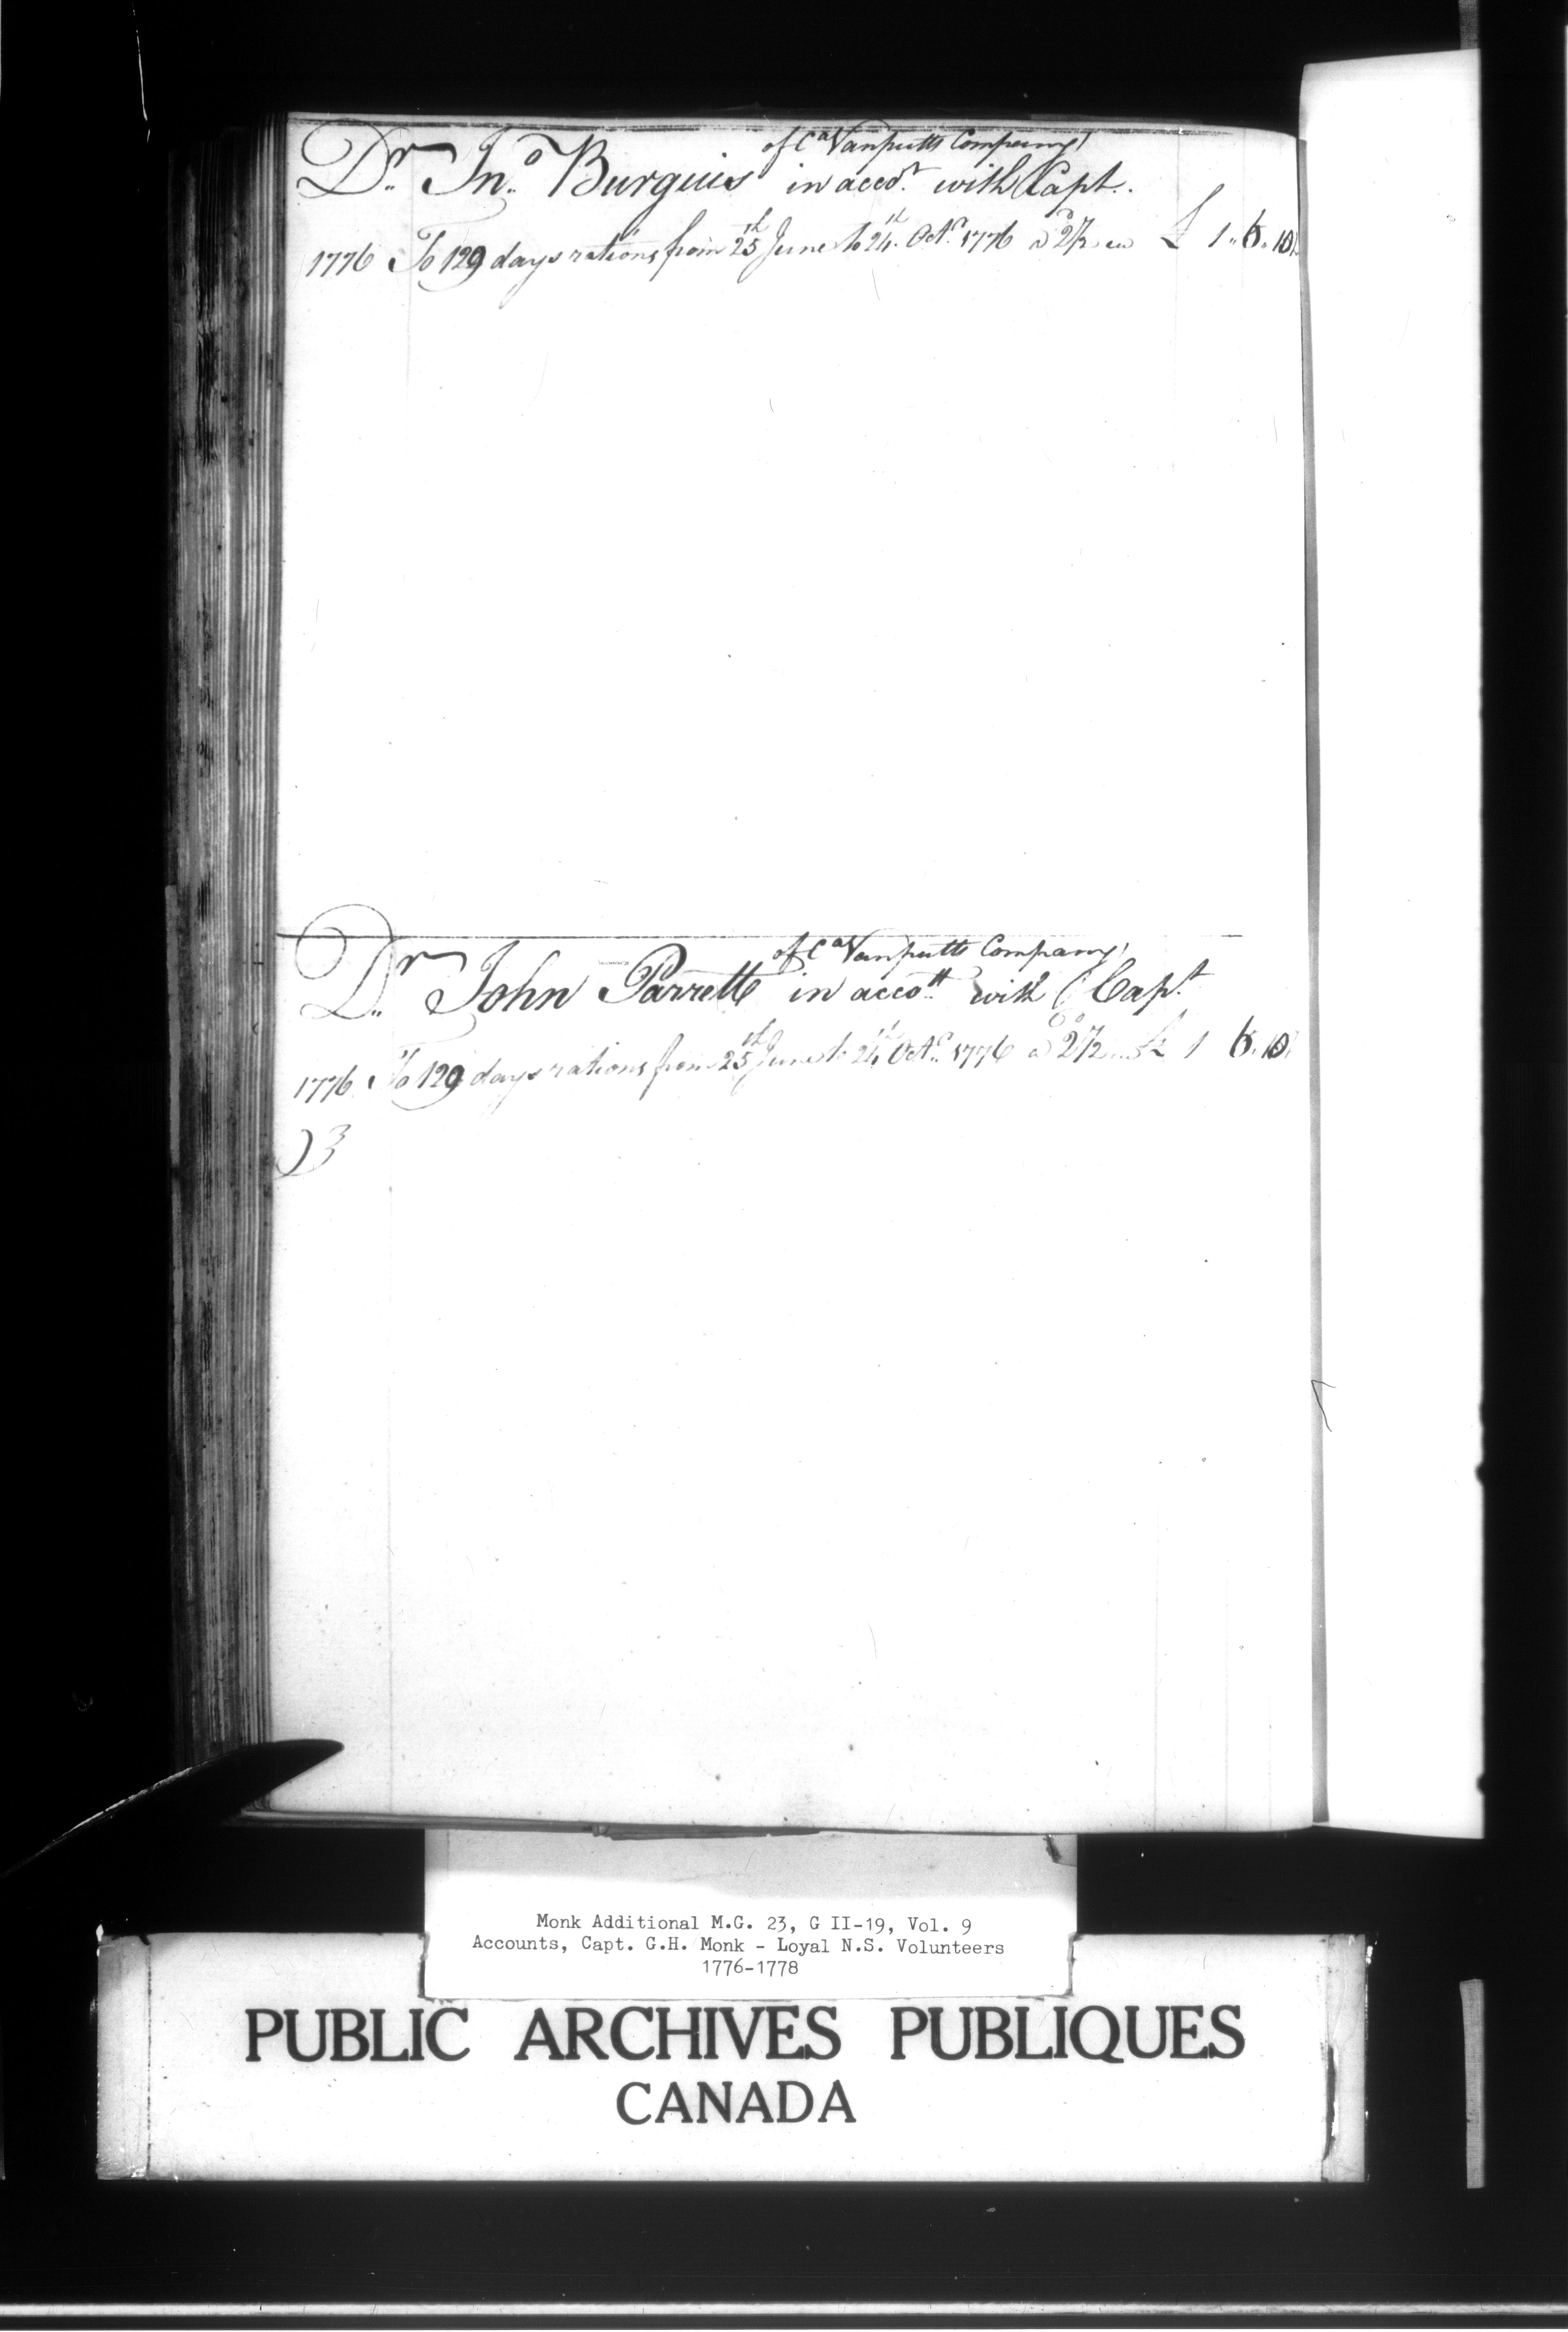 of Ca Vanputts Company
Dr. Jno. Burguis in accot. with Capt.
1776 To 129 days rations from 25th June to 24th Octr. 1776 a 2½ £ 1.. 6.. 10
of Ca Vanputts Company
Dr. John Parrett in accott. with Capt
1776 To 129 days rations from 25th June to 24th Octr. 1776 a 2½ £ 1 6.. 10
Monk Additional M.G. 23, G II-19, Vol. 9
Accounts, Capt. G.H. Monk - Loyal N.S. Volunteers
1776-1778
PUBLIC ARCHIVES PUBLIQUES
CANADA